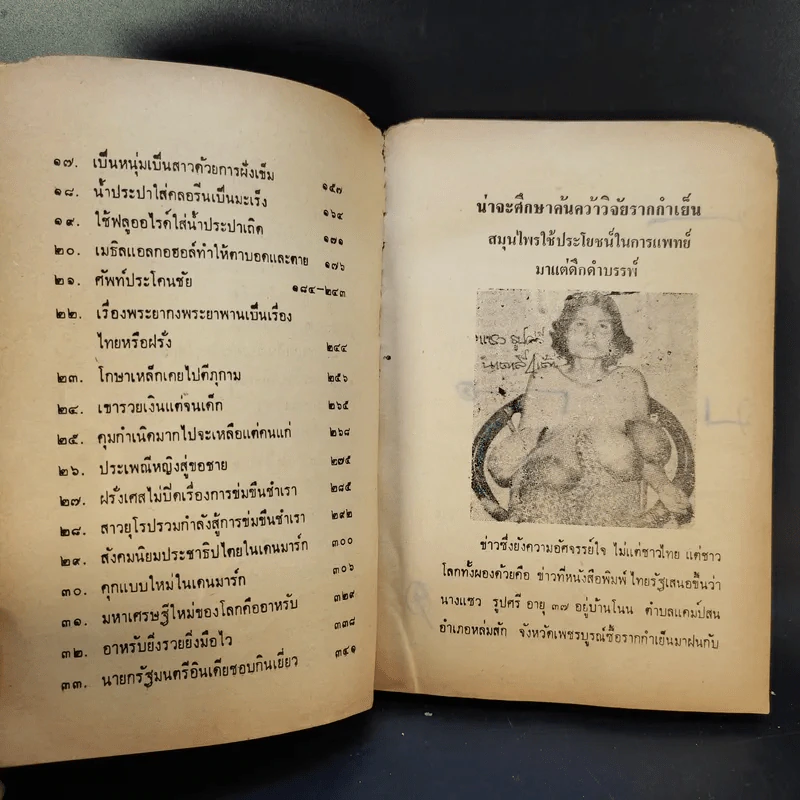 ๑๗. เป็นหนุ่มเป็นสาวด้วยการฝังเข็ม ๑๕๗
๑๘. น้ำประปาใส่คลอรีนเป็นมะเร็ง ๑๖๔
๑๙. ใช้ฟลูออไรด์ใส่น้ำประปาเถิด ๑๗๑
๒๐. เมธิลแอลกอฮอล์ทำให้ตาบอดและตาย ๑๗๖
๒๑. ศัพท์ประโคนชัย ๑๘๔-๒๔๓
๒๒. เรื่องพระยากงพระยาพานเป็นเรื่อง
ไทยหรือฝรั่ง ๒๔๔
๒๓. โกษาเหล็กเคยไปตีภุกาม ๒๕๖
๒๔. เขารวยเงินแต่จนเด็ก ๒๖๕
๒๕. คุมกำเนิดมากไปจะเหลือแต่คนแก่ ๒๖๘
๒๖. ประเพณีหญิงสู่ขอชาย ๒๗๕
๒๗. ฝรั่งเศสไม่ปิดเรื่องการข่มขืนชำเรา ๒๘๕
๒๘. สาวยุโรปรวมกำลังสู้การข่มขืนชำเรา ๒๙๒
๒๙. สังคมนิยมประชาธิปไตยในเดนมาร์ก ๓๐๐
๓๐. คุกแบบใหม่ในเดนมาร์ก ๓๐๖
๓๑. มหาเศรษฐีใหม่ของโลกคืออาหรับ ๓๒๙
๓๒. อาหรับยิ่งรวยยิ่งมือไว ๓๓๘
๓๓. นายกรัฐมนตรีอินเดียชอบกินเยี่ยว ๓๔๑
น่าจะศึกษาค้นคว้าวิจัยรากกำเย็น
สมุนไพรใช้ประโยชน์ในการแพทย์
มาแต่ดึกดำบรรพ์
ข่าวซึ่งยังความอัศจรรย์ใจ ไม่แต่ชาวไทย แต่ชาว
โลกทั้งผองด้วยคือ ข่าวที่หนังสือพิมพ์ ไทยรัฐเสนอขึ้นว่า
นางแซว รูปศรี อายุ ๓๗ อยู่บ้านโนน ตำบลแคมป์สน
อำเภอหล่มสัก จังหวัดเพชรบูรณ์ซื้อรากกำเย็นมาฝนกับ